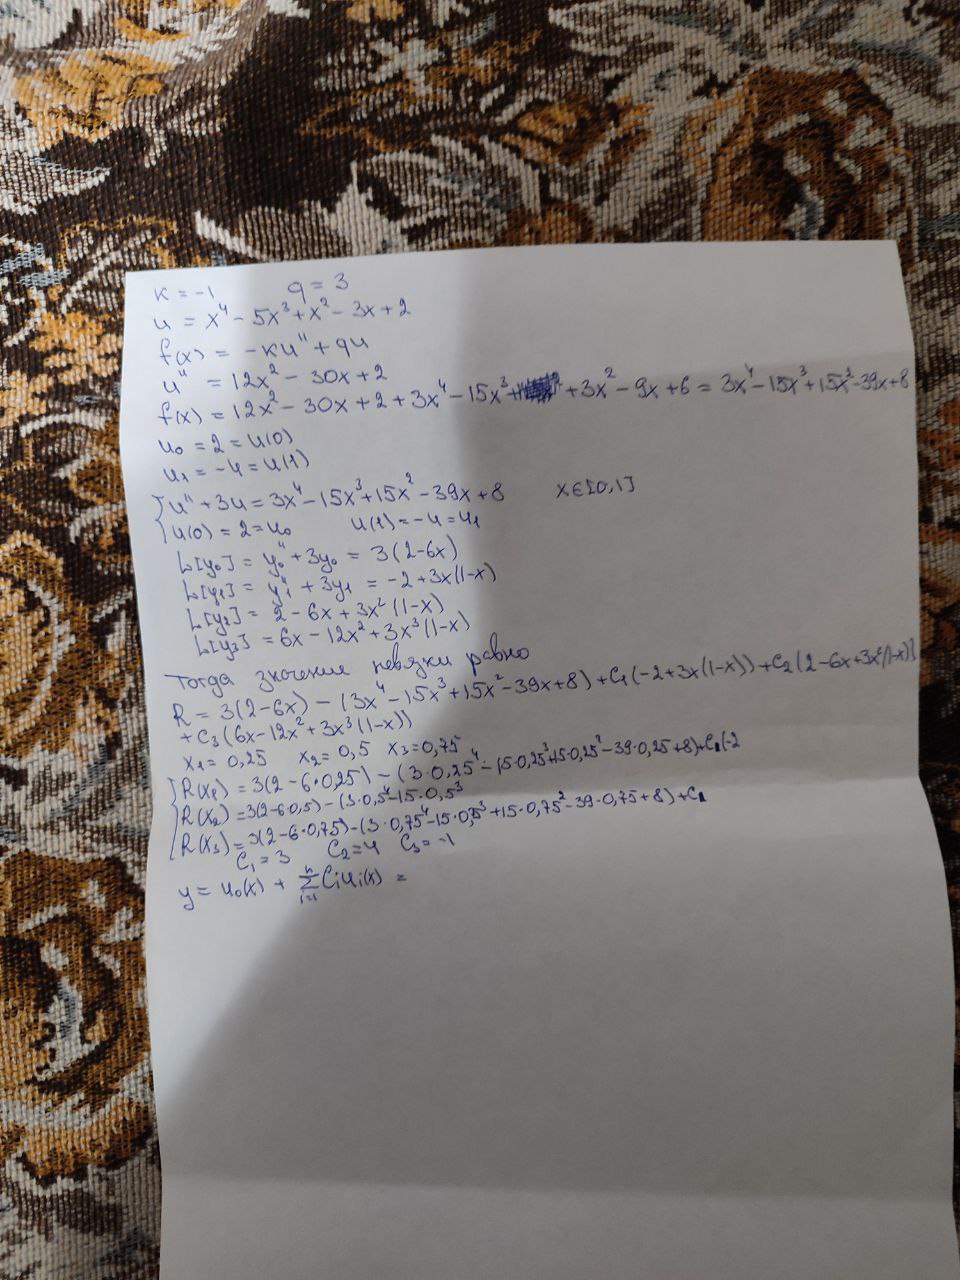 к = -1 q = 3
u = x⁴ - 5x³ + x² - 3x + 2
f(x) = -кu'' + qu
u'' = 12x² - 30x + 2
f(x) = 12x² - 30x + 2 + 3x⁴ - 15x³ + 3x² - 9x + 6 = 3x⁴ - 15x³ + 15x² - 39x + 8
u₀ = 2 = u(0)
u₁ = -4 = u(1)
u'' + 3u = 3x⁴ - 15x³ + 15x² - 39x + 8 x∈[0,1]
u(0) = 2 = u₀ u(1) = -4 = u₁
L[y₀] = y₀'' + 3y₀ = 3(2-6x)
L[y₁] = y₁'' + 3y₁ = -2 + 3x(1-x)
L[y₂] = 2 - 6x + 3x²(1-x)
L[y₃] = 6x - 12x² + 3x³(1-x)
Тогда значение невязки равно
R = 3(2-6x) - (3x⁴ - 15x³ + 15x² - 39x + 8) + C₁(-2 + 3x(1-x)) + C₂(2 - 6x + 3x²(1-x))
+ C₃(6x - 12x² + 3x³(1-x))
x₁ = 0,25 x₂ = 0,5 x₃ = 0,75
R(x₁) = 3(2 - 6·0,25) - (3·0,25⁴ - 15·0,25³ + 15·0,25² - 39·0,25 + 8) + C₁(-2
R(x₂) = 3(2-6·0,5) - (3·0,5⁴ - 15·0,5³
R(x₃) = 3(2 - 6·0,75) - (3·0,75⁴ - 15·0,75³ + 15·0,75² - 39·0,75 + 8) + C₁
C₁ = 3 C₂ = 4 C₃ = -1
y = u₀(x) + ∑ⁿᵢ₌₁ Cᵢuᵢ(x) =